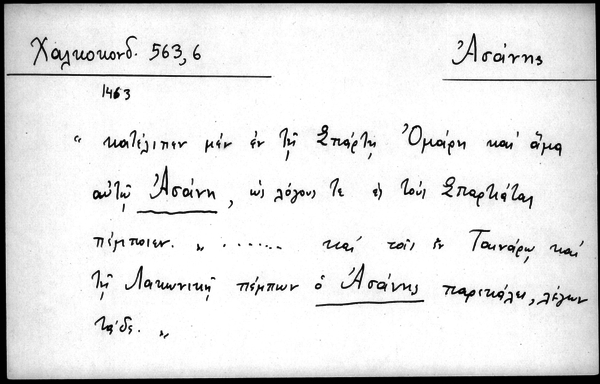 Χαλκοκονδ. 563,6 Ἀσάνης
1463
" κατέλιπεν μέν ἐν τῇ Σπάρτῃ Ὀμάρη καί ἅμα
αὐτῷ Ἀσάνη, ὡς λόγους τε ἐς τούς Σπαρτιάτας
πέμποιεν. " ....... καί τοῖς ἐν Ταινάρῳ καί
τῇ Λακωνικῇ πέμπων ὁ Ἀσάνης παρεκάλει, λέγων
τάδε. "